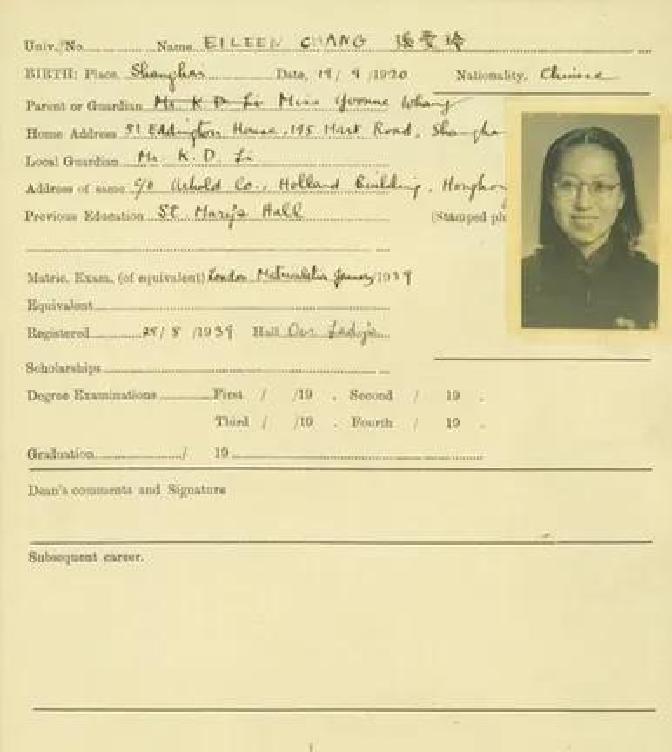 Univ. No. Name EILEEN CHANG 張愛玲
BIRTH: Place, Shanghai Date, 19/9/1920 Nationality, Chinese
Parent or Guardian Mr. K D Li Miss Yvonne Whang
Home Address 51 Eddington House, 195 Hart Road, Shangha
Local Guardian Mr. K. D. Li
Address of same c/o Arhold Co., Holland Building, Hongkong
Previous Education St. Mary's Hall (Stamped ph
Matric. Exam. (of equivalent) London Matriculation January/1939
Equivalent
Registered 29/8/1939 Hall Our Lady's
Scholarships
Degree Examinations First / /19 . Second / 19 .
Third / /19 . Fourth / 19 .
Graduation / 19
Dean's comments and Signature
Subsequent career.